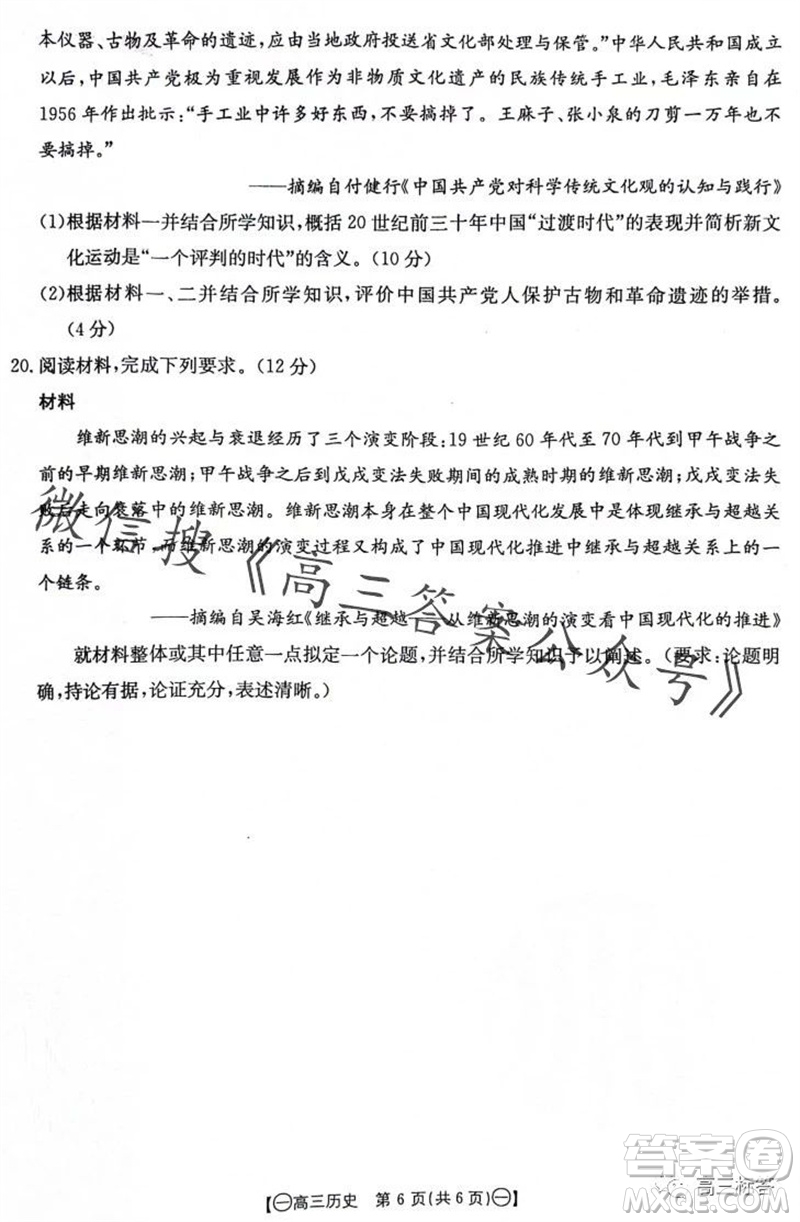 本仪器、古物及革命的遗迹,应由当地政府投送省文化部处理与保管。”中华人民共和国成立
以后,中国共产党极为重视发展作为非物质文化遗产的民族传统手工业,毛泽东亲自在
1956 年作出批示:“手工业中许多好东西,不要搞掉了。王麻子、张小泉的刀剪一万年也不
要搞掉。”
——摘编自付健行《中国共产党对科学传统文化观的认知与践行》
(1)根据材料一并结合所学知识,概括 20 世纪前三十年中国“过渡时代”的表现并简析新文
化运动是“一个评判的时代”的含义。(10 分)
(2)根据材料一、二并结合所学知识,评价中国共产党人保护古物和革命遗迹的举措。
(4 分)
20. 阅读材料,完成下列要求。(12 分)
材料
维新思潮的兴起与衰退经历了三个演变阶段:19 世纪 60 年代至 70 年代到甲午战争之
前的早期维新思潮;甲午战争之后到戊戌变法失败期间的成熟时期的维新思潮;戊戌变法失
败后走向衰落中的维新思潮。维新思潮本身在整个中国现代化发展中是体现继承与超越关
系的一个环节,而维新思潮的演变过程又构成了中国现代化推进中继承与超越关系上的一
个链条。
——摘编自吴海红《继承与超越——从维新思潮的演变看中国现代化的推进》
就材料整体或其中任意一点拟定一个论题,并结合所学知识予以阐述。(要求:论题明
确,持论有据,论证充分,表述清晰。)
微信搜《高三答案公众号》
【㊀高三历史 第 6 页(共 6 页)㊀】
高三标答
答案卷
MXQE.COM